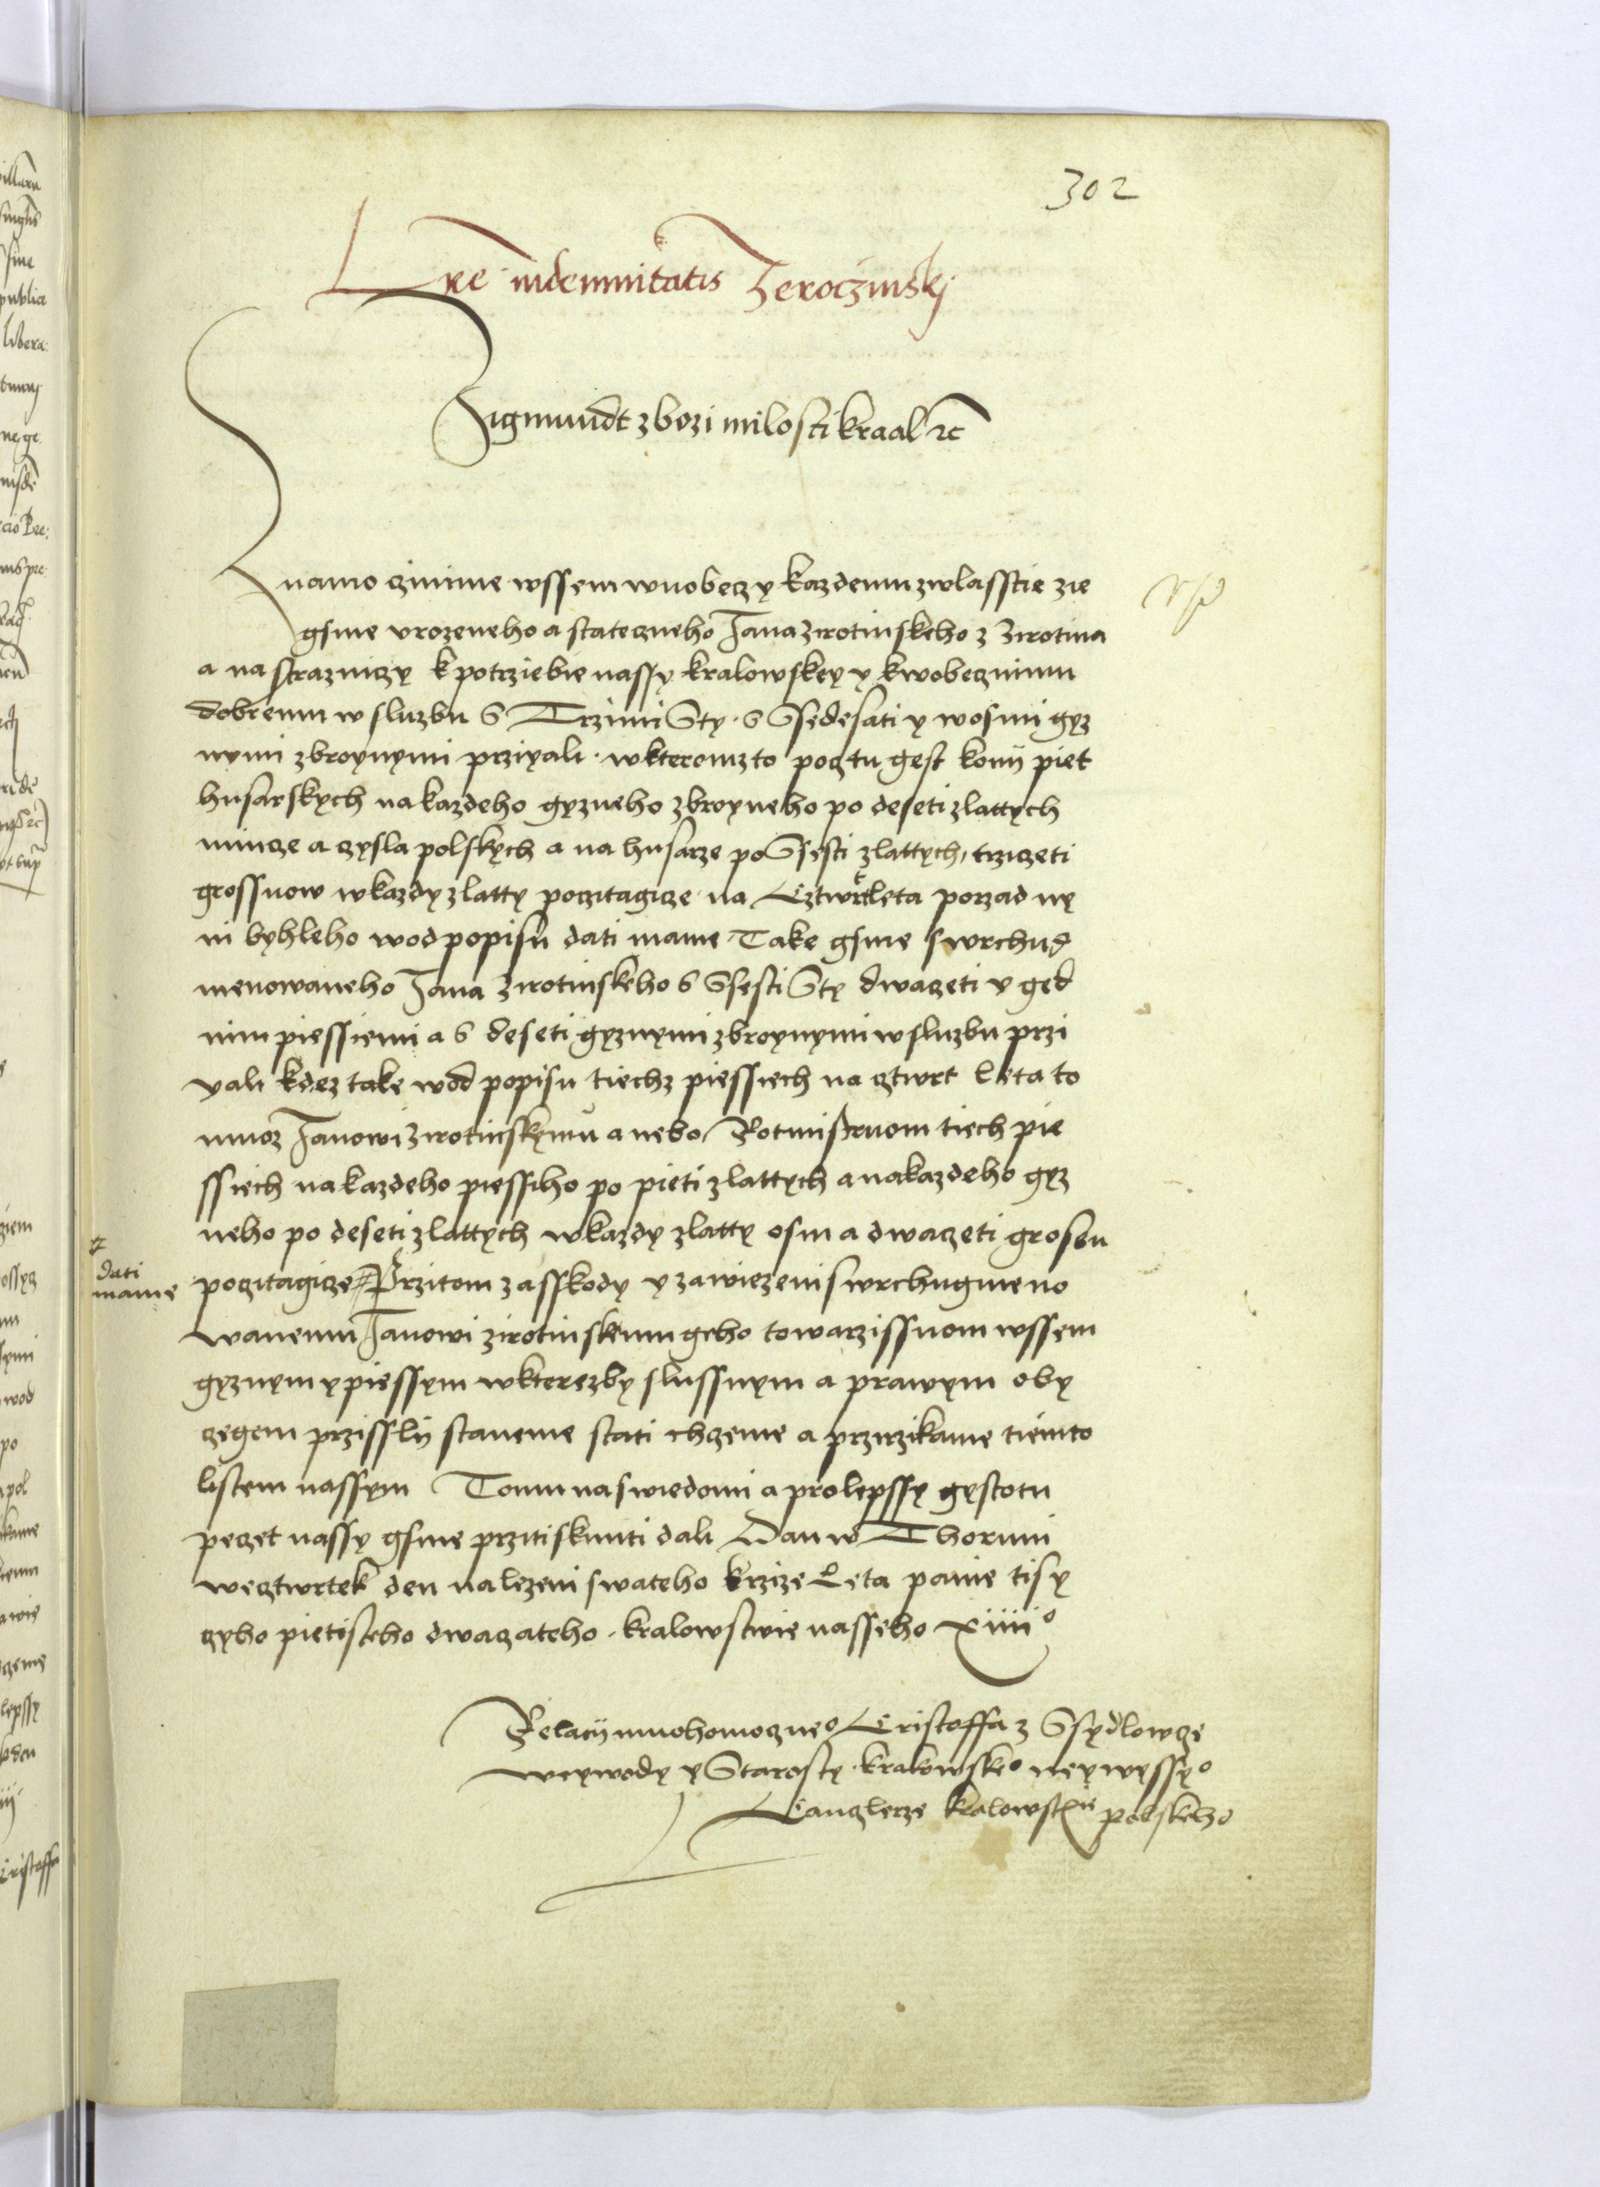 302
Lre indemnitatis Zeroczinskj
Zigmundt z bozi milosti kraal rc
Znamo czinime wssem wuobecz y kazdemu zwlasstie zie
gsme urozeneho a stateczneho Jana Zirotinskeho z Zirotina
a na strazniczy k potrziebie nassy kralowskey y kwobecznimu
dobremu w sluzbu s Trzimi Sty s Ssedesati y wosmi gyz
nymi zbroynymi prziyali wkteremzto pocztu gest konij piet
husarskych na kazdeho gyzneho zbroyneho po deseti zlattych
mincze a czysla polskych a na husarze po Ssesti zlattych, trziczeti
grossuow w kazdy zlatty pocztitagicze na Cztwrt leta porzad ny
ni byhleho wod popisu dati mame Take gsme swrchug
menowaneho Jana Zirotinskeho s Ssesti Sty dwaczeti y ged
nim piessiemi a s deseti gyznymi zbroynymi w sluzbu przi
yali kdez take wod popisu tiechz piessiech na cztwrt leta to
muoz Janowi Zirotinskymu a nebo Rotmistruom tiech pie
ssiech na kazdeho piessiho po pieti zlattych a na kazdeho gyz
neho po deseti zlattych w kazdy zlatty osm a dwaczeti grossu
dati
mame
pocztitagicze Przitom za sskody y za wiezeni swrchugmeno
wanemu Janowi Zirotinskemu geho towarzissuom wssem
gyznym y piessym w kterezby slussnym a prawym oby
czegem przisslij staneme stati chczeme a przirzikame tiemto
listem nassym Tomu na swiedomi a pro lepssy gystotu
peczet nassy gsme przitisknuti dali Dan w Thoruni
we cztwrtek den nalezeni swateho krzize Leta panie tisy
czyho pietisteho dwaczateho kralowstwie nasseho xiiii°
Relacij mnohomoczne° Cristoffa z Ssydlowcze
weywody y Starosty krakowske° neywyssy°
Canczlerze kralowstwie polskeho